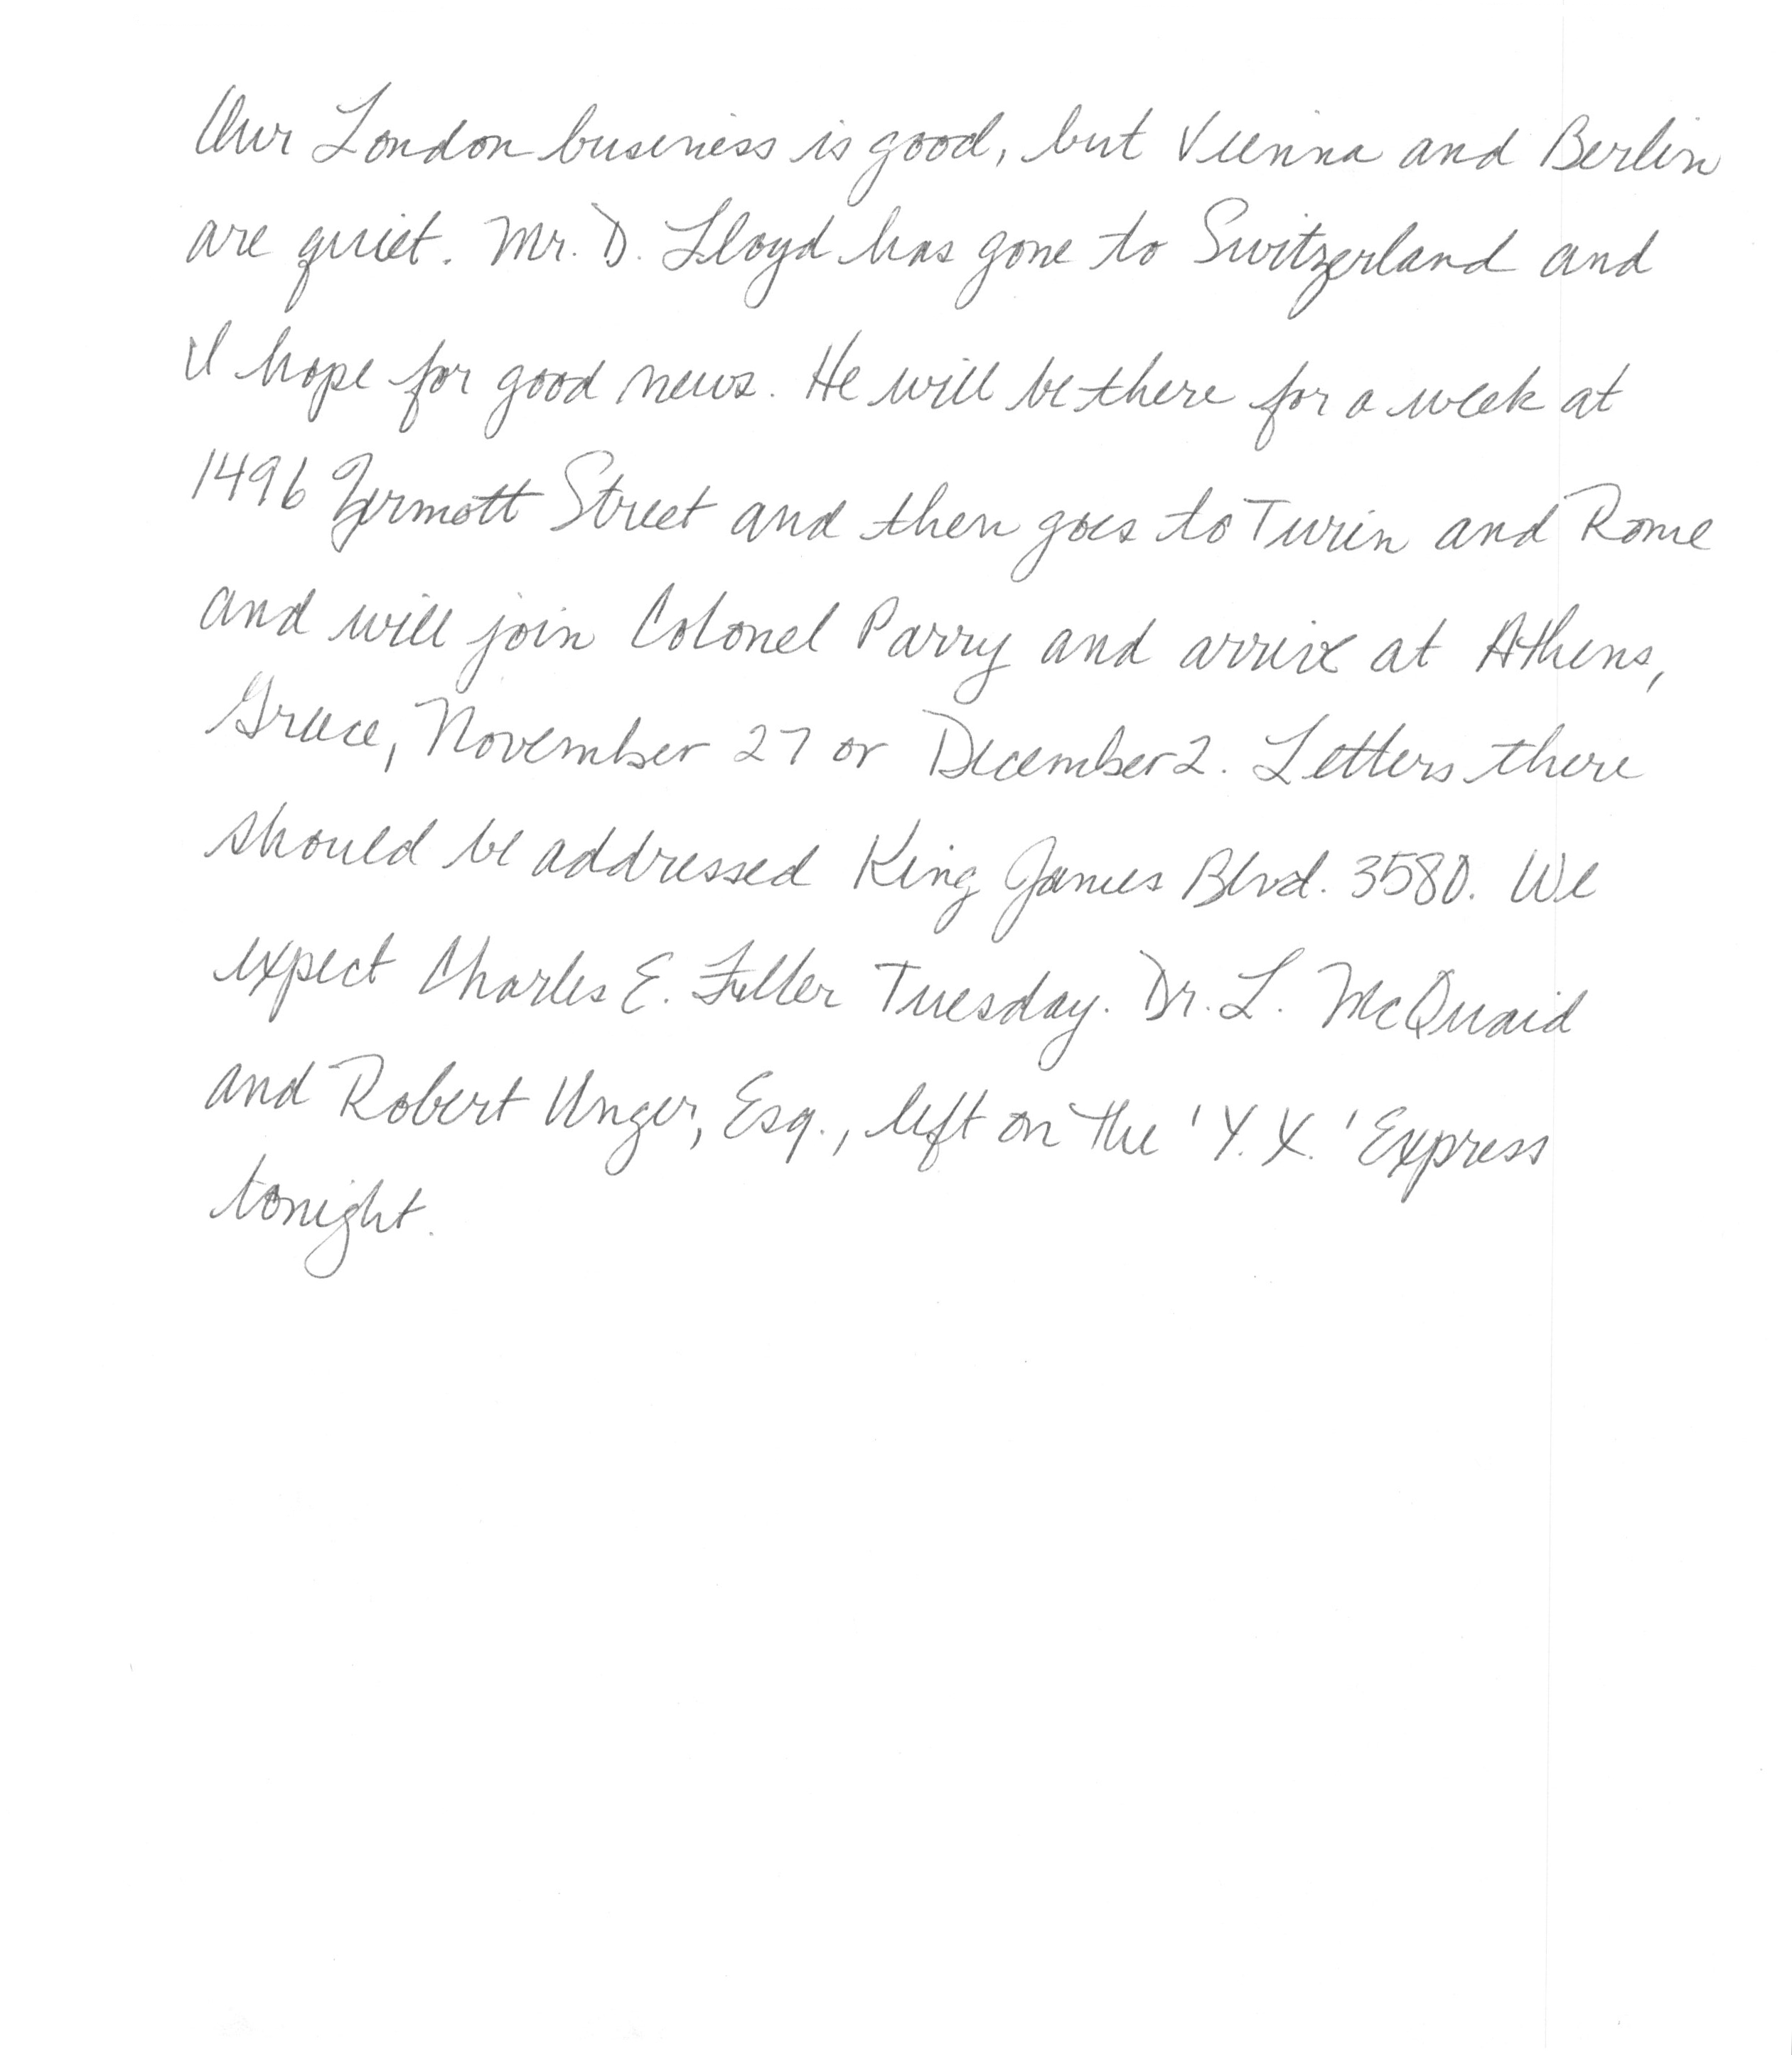 Our London business is good, but Vienna and Berlin
are quiet. Mr. D. Lloyd has gone to Switzerland and
I hope for good news. He will be there for a week at
1496 Zermott Street and then goes to Turin and Rome
and will join Colonel Parry and arrive at Athens,
Greece, November 27 or December 2. Letters there
should be addressed King James Blvd. 3580. We
expect Charles E. Fuller Tuesday. Dr. L. McQuaid
and Robert Unger, Esq., left on the 'Y.X.' Express
tonight.